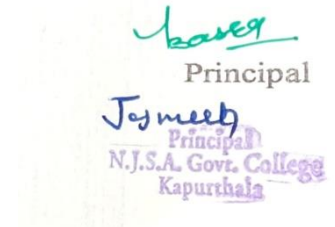 Principal
Jasmeeh
Principal
N.J.S.A. Govt. College
Kapurthala